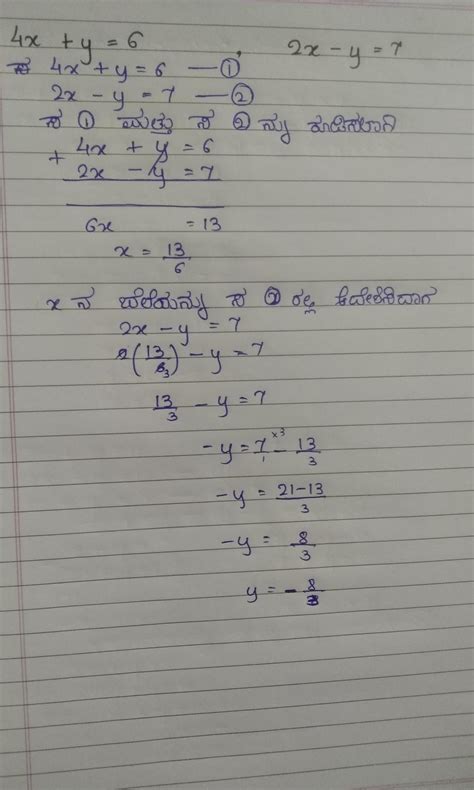 4x + y = 6 , 2x - y = 7
ಸ 4x + y = 6 — ①
2x - y = 7 — ②
ಸ ① ಮತ್ತು ಸ ② ನ್ನು ಕೂಡಿಸಲಾಗಿ
+ 4x + y = 6
2x - y = 7
6x = 13
x = 13/6
x ನ ಬೆಲೆಯನ್ನು ಸ ② ರಲ್ಲಿ ಆದೇಶಿಸಿದಾಗ
2x - y = 7
2(13/6 3) - y = 7
13/3 - y = 7
-y = 7/1 ×3 - 13/3
-y = 21-13/3
-y = 8/3
y = - 8/3